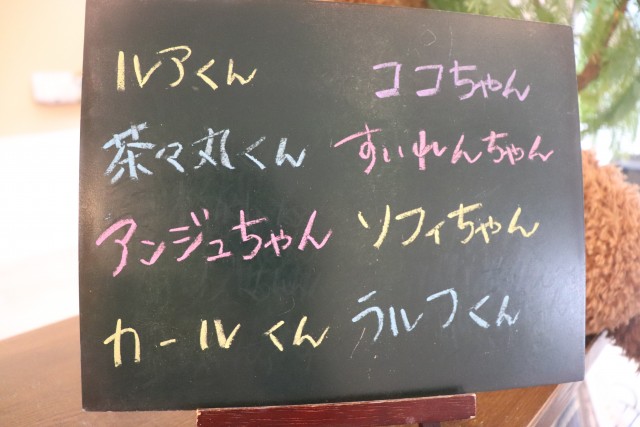 ルアくん
ココちゃん
茶々丸くん
すいれんちゃん
アンジュちゃん
ソフィちゃん
カールくん
ラルフくん